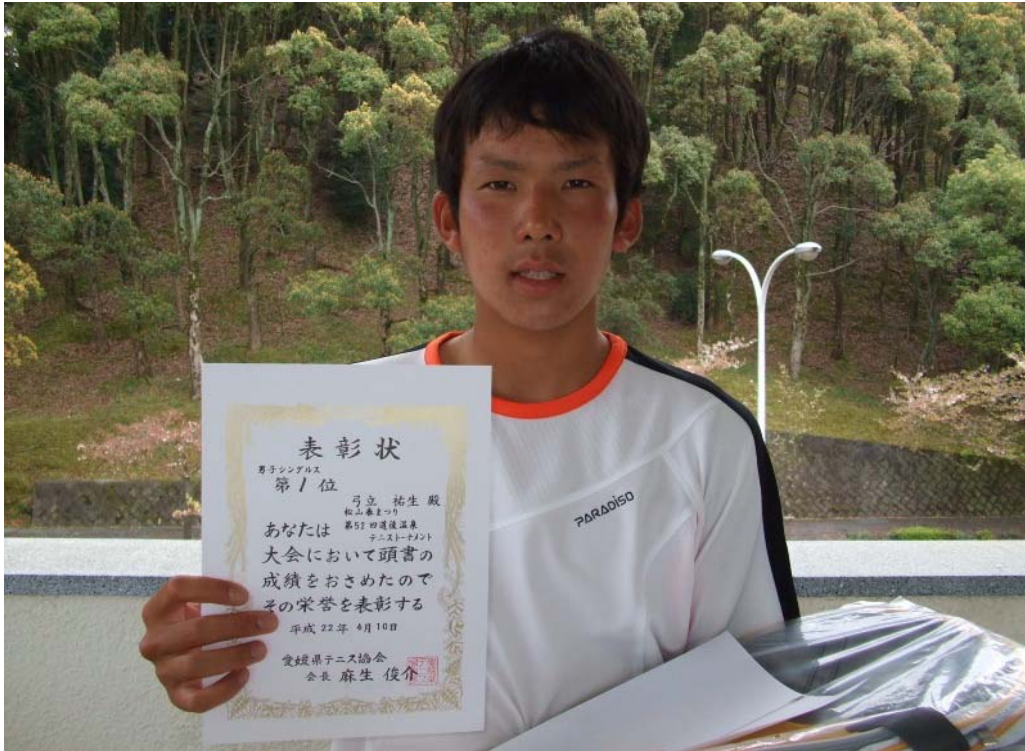 表彰状
男子シングルス
第1位
弓立 祐生 殿
松山春まつり
あなたは 第52回道後温泉
テニストーナメント
大会において頭書の
成績をおさめたので
その栄誉を表彰する
平成22年 4月10日
愛媛県テニス協会
会長 麻生 俊介
PARADISO